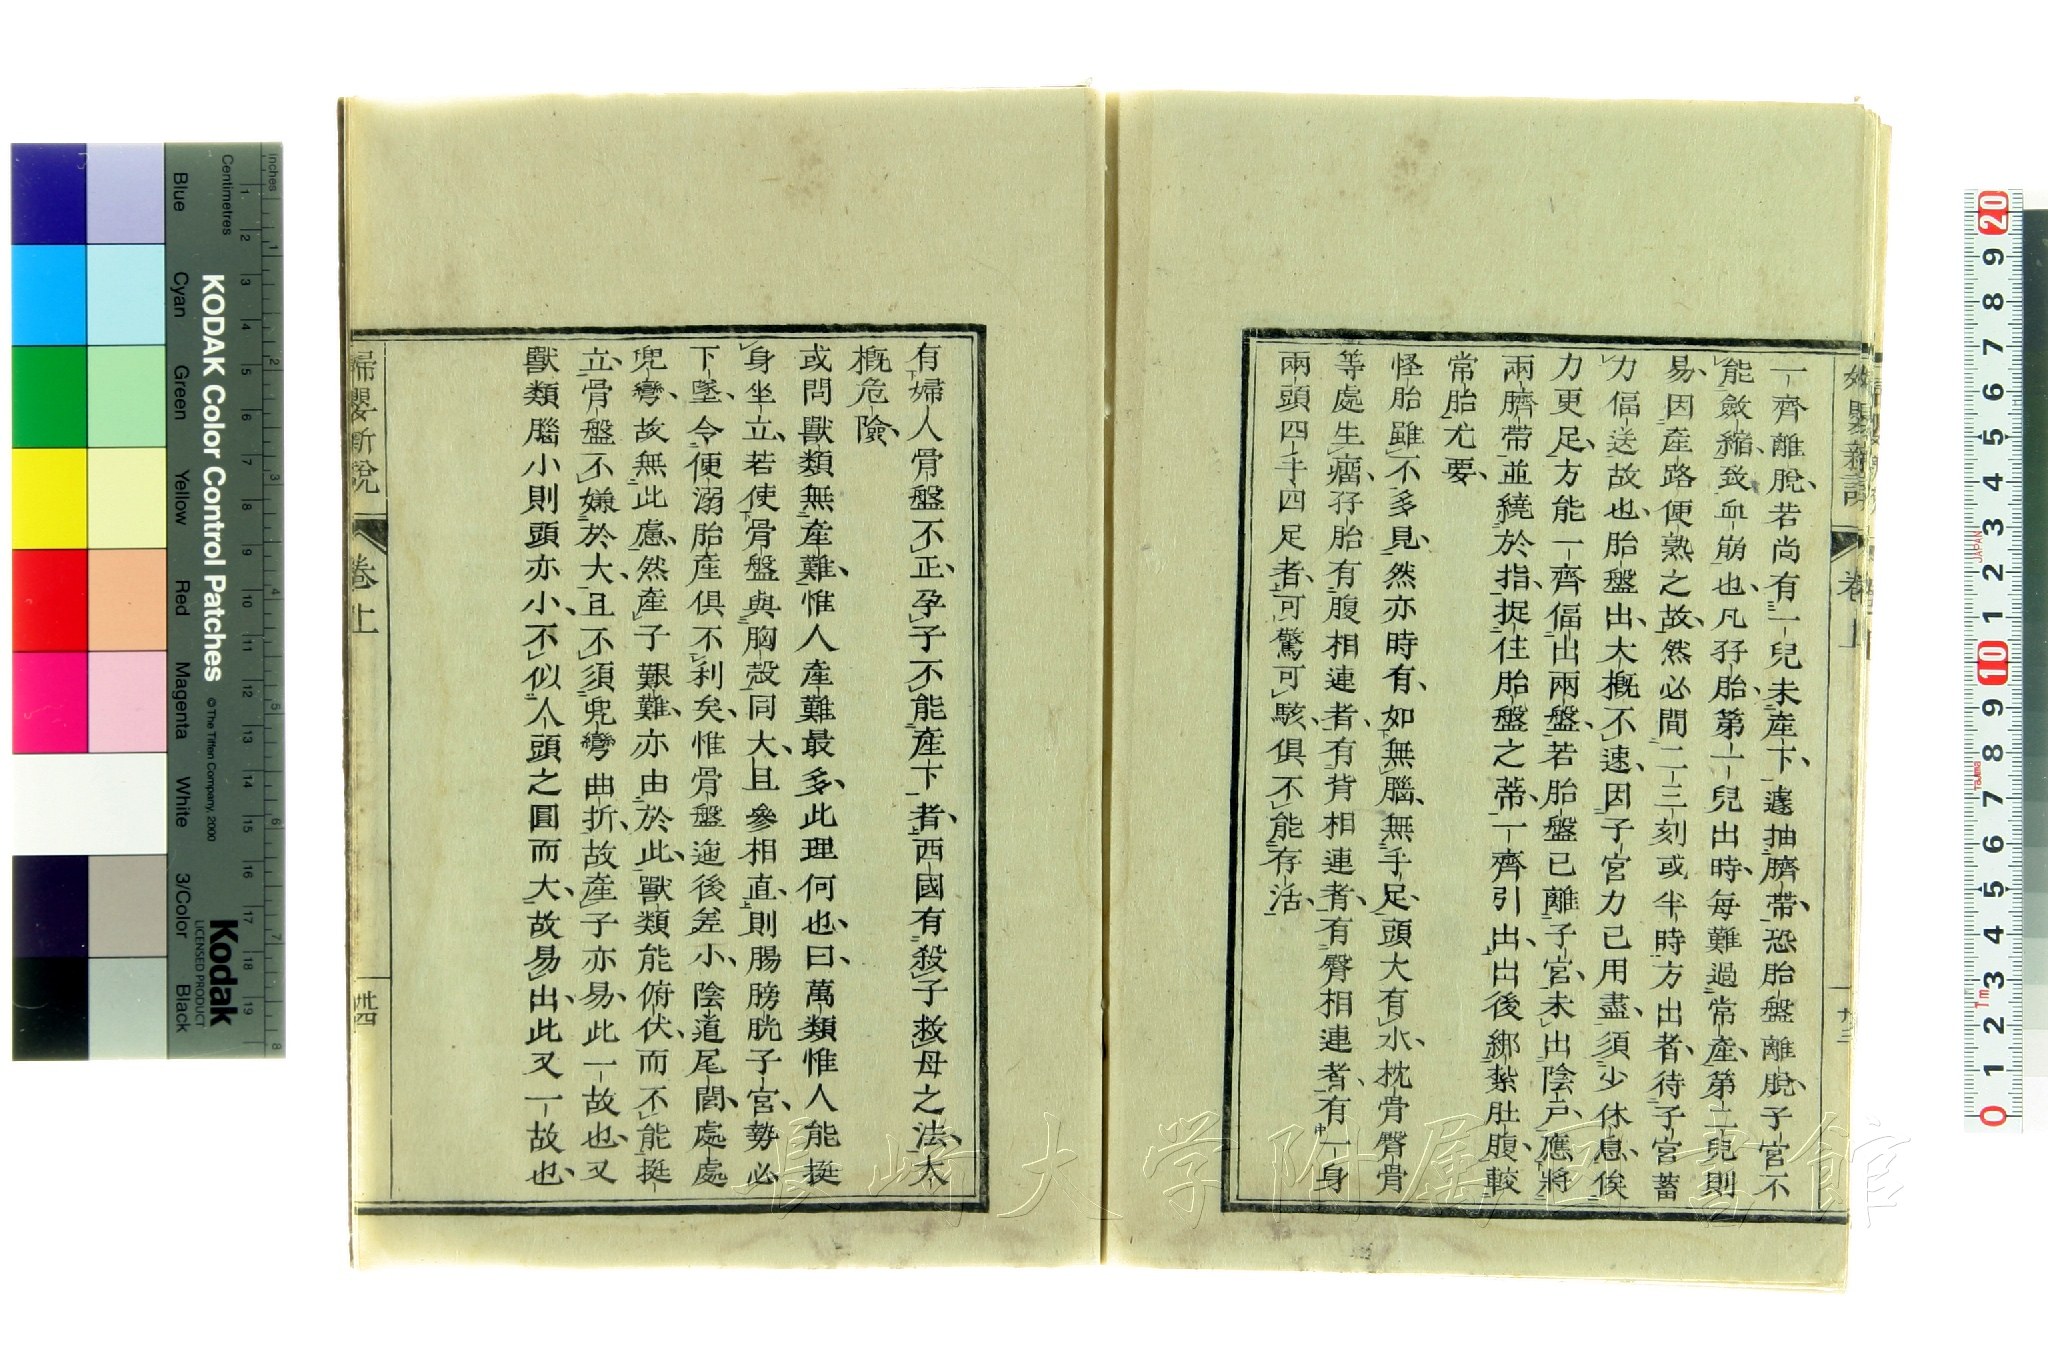 一齊離脫、若尚有一兒未產下、遽抽臍帶、恐胎盤離脫、子宮不
能斂縮、致血崩也、凡孖胎第一兒出時、每難過常產、第二兒則
易、因產路便熟之故、然必間二三刻或半時方出者、待子宮蓄
力偪送故也、胎盤出、大概不速、因子宮力已用盡、須少休息、俟
力更足、方能一齊偪出兩盤、若胎盤已離子宮、未出陰戶、應將
兩臍帶並繞於指、捉住胎盤之蒂、一齊引出、出後綁紮肚腹、較
常胎尤要、
怪胎雖不多見、然亦時有、如無腦、無手足、頭大有水、枕骨臀骨
等處生瘤、孖胎有腹相連者、有背相連者、有臀相連者、有一身
兩頭四手四足者、可驚可駭、俱不能存活
婦嬰新說
卷上
廿三
有婦人骨盤不正、孕子不能產下者、西國有殺子救母之法、太
概危險、
或問獸類無產難、惟人產難最多、此理何也、曰、萬類惟人能挺
身坐立、若使骨盤與胸殼同大、且參相直、則腸膀胱子宮、勢必
下墜、令便溺胎產俱不利矣、惟骨盤迤後差小、陰道尾閭、處處
兜彎、故無此慮、然產子艱難、亦由於此、獸類能俯伏、而不能挺
立、骨盤不嫌於大、且不須兜彎曲折、故產子亦易、此一故也、又
獸類腦小則頭亦小、不似人頭之圓而大、故易出、此又一故也、
婦嬰新說
卷上
廿四
長崎大学附属図書館
KODAK Color Control Patches
© The Tiffen Company, 2000
Kodak
LICENSED PRODUCT
Inches
Centimetres
Blue
Cyan
Green
Yellow
Red
Magenta
White
3/Color
Black
1 2 3 4 5 6 7 8 9 10 11 12 13 14 15 16 17 18 19
1 2 3 4 5 6 7 8
0 1 2 3 4 5 6 7 8 9 10 1 2 3 4 5 6 7 8 9 20
JAPAN
Tajima
Tm